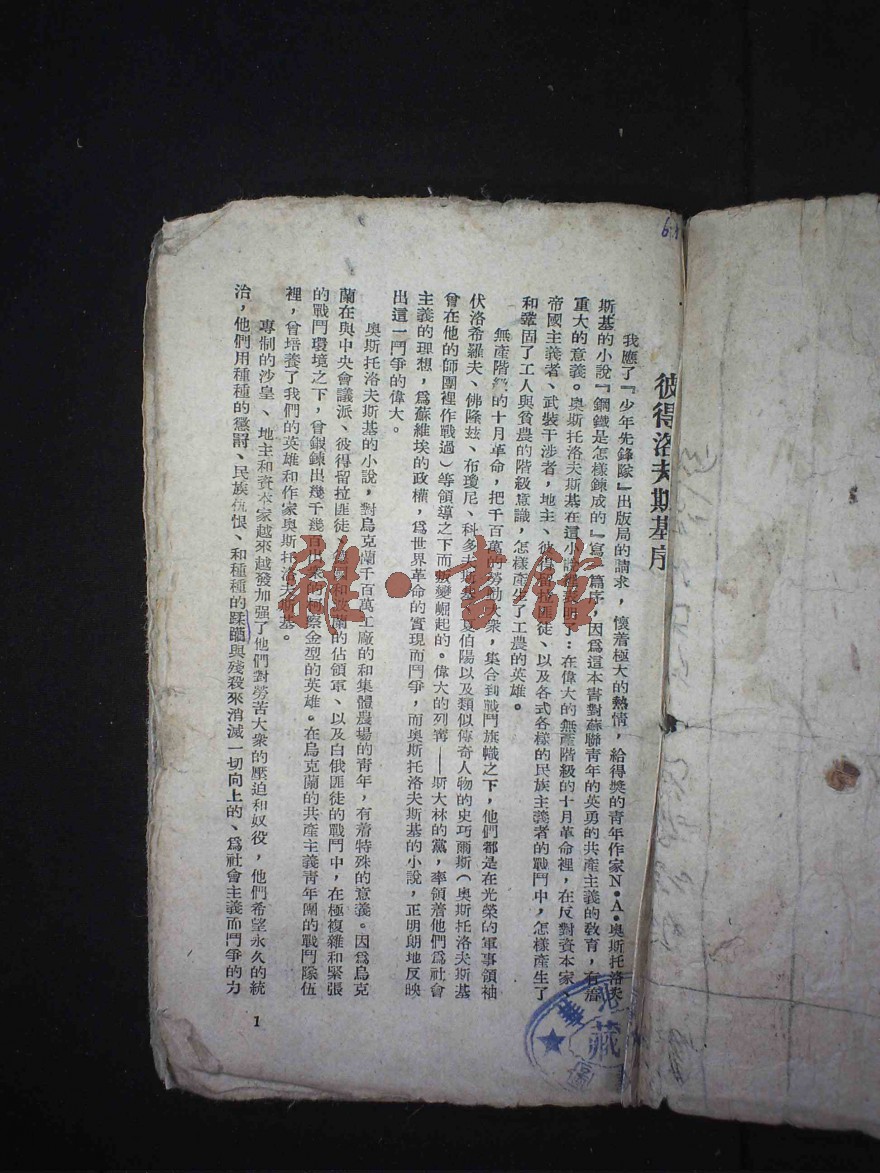 彼得洛夫斯基序
我應了『少年先鋒隊』出版局的請求，懷着極大的熱情，給得獎的青年作家N•A•奧斯托洛夫
斯基的小說『鋼鐵是怎樣鍊成的』寫一篇序，因爲這本書對蘇聯青年的英勇的共產主義的教育，有着
重大的意義。奧斯托洛夫斯基在這小說裡表明了：在偉大的無產階級的十月革命裡，在反對資本家、
帝國主義者、武裝干涉者，地主、彼得留拉匪徒、以及各式各樣的民族主義者的戰鬥中，怎樣產生了
和鞏固了工人與貧農的階級意識，怎樣產生了工農的英雄。
無產階級的十月革命，把千百萬的勞動大衆，集合到戰鬥旗幟之下，他們都是在光榮的軍事領袖
伏洛希羅夫、佛隆玆、布瓊尼、科多夫斯基、夏伯陽以及類似傳奇人物的史巧爾斯（奧斯托洛夫斯基
曾在他的師團裡作戰過）等領導之下而叛變崛起的。偉大的列寧——斯大林的黨，率領着他們爲社會
主義的理想，爲蘇維埃的政權，爲世界革命的實現而鬥爭，而奧斯托洛夫斯基的小說，正明朗地反映
出這一鬥爭的偉大。
奧斯托洛夫斯基的小說，對烏克蘭千百萬工廠的和集體農場的青年，有着特殊的意義。因爲烏克
蘭在與中央會議派、彼得留拉匪徒、德國和波蘭的佔領軍、以及白俄匪徒的戰鬥中，在極複雜和緊張
的戰鬥環境之下，曾鍛鍊出幾千幾百出衆的柯察金型的英雄。在烏克蘭的共產主義青年團的戰鬥隊伍
裡，曾培養了我們的英雄和作家奧斯托洛夫斯基。
專制的沙皇、地主和資本家越來越發加强了他們對勞苦大衆的壓迫和奴役，他們希望永久的統
治，他們用種種的懲罸、民族仇恨、和種種的蹂躪與殘殺來消滅一切向上的、爲社會主義而鬥爭的力
1
雜•書館
藏